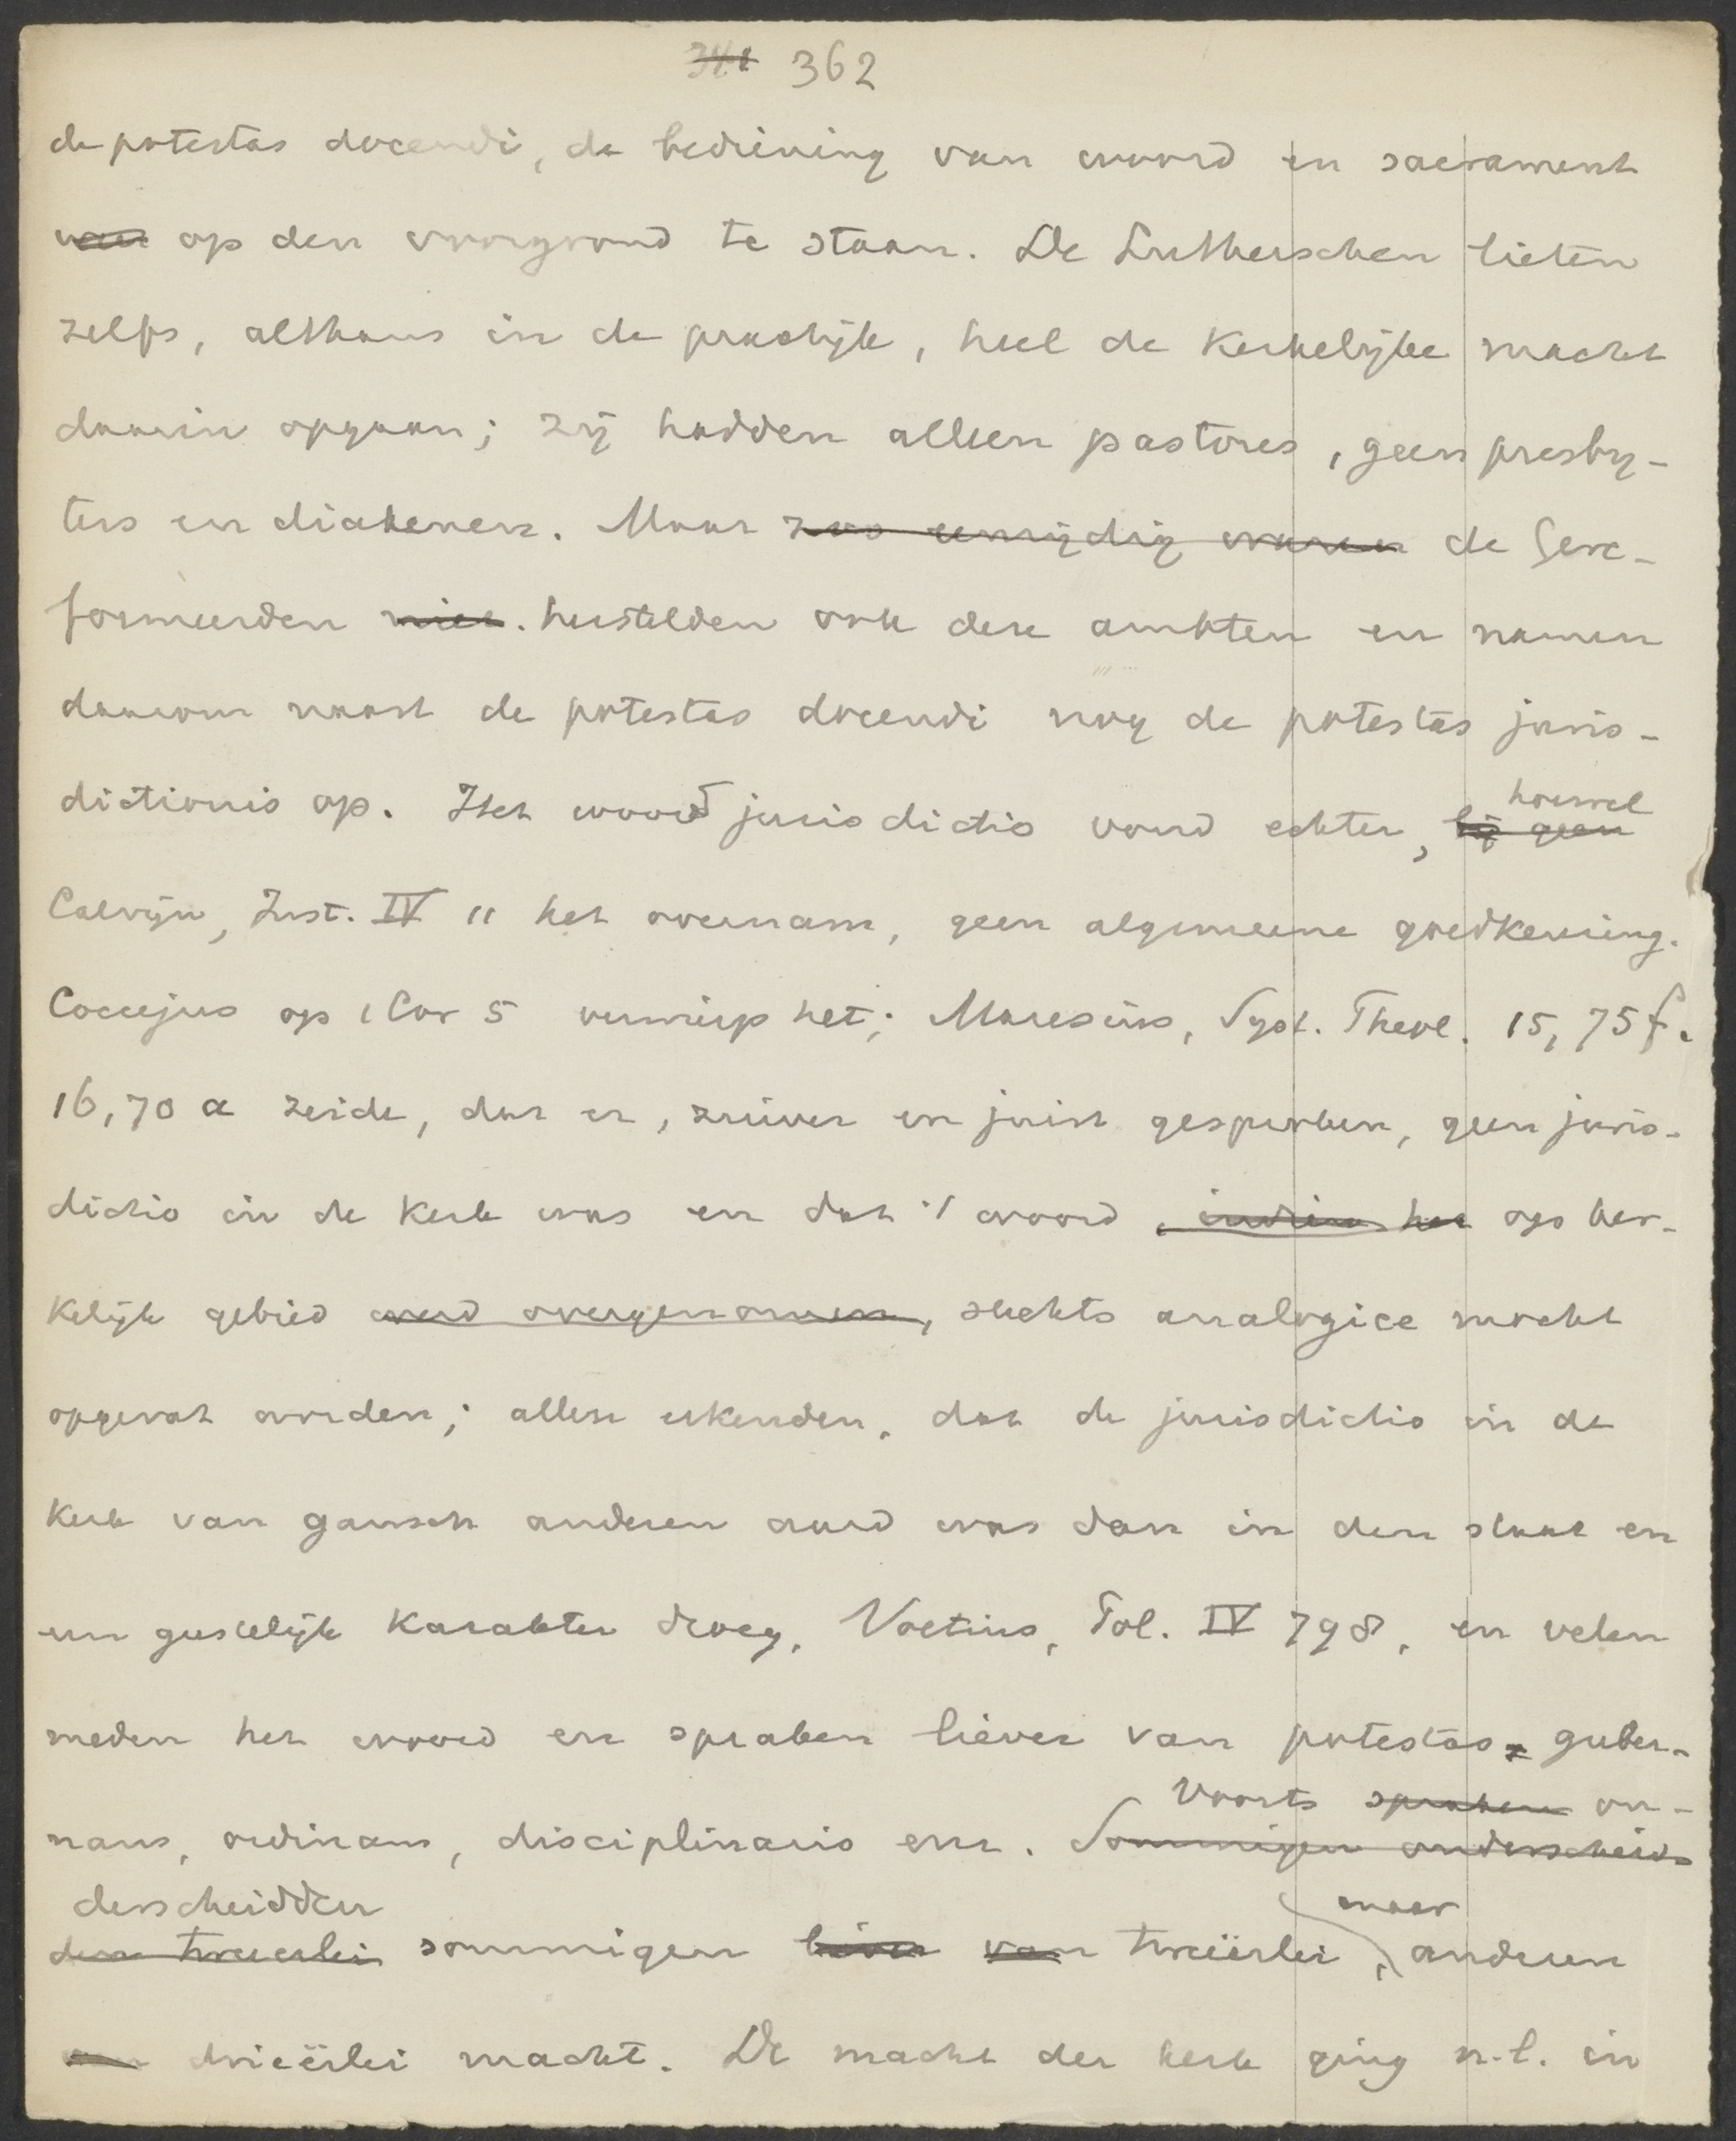 341 362
de potestas docendi, de bediening van woord en sacrament
op den voorgrond te staan. De Lutherschen lieten
zelfs, althans in de praktijk, heel de kerkelijke macht
daarin opgaan; zij hadden alleen pastores, geen presby-
ters en diakenen. Maar zoo eenzijdig waren de Gere-
formeerden niet. herstelden ook deze ambten en namen
daarom naast de potestas docendi nog de potestas juris-
hoewel
dictionis op. Het woord jurisdictio vond echter, bij geen
Calvijn, Inst. IV 11 het overnam, geen algemeene goedkeuring.
Coccejus op 1 Cor 5 verwierp het; Maresius, Syst. Theol. 15, 75 f.
16, 70 a zeide, dat er, zuiver en juist gesproken, geen juris-
dictio in de kerk was en dat 't woord, indien het op ker-
kelijk gebied werd overgenomen, slechts analogice mocht
opgevat worden; allen erkenden, dat de jurisdictio in de
kerk van gansch anderen aard was dan in den staat en
een geestelijk karakter droeg, Voetius, Pol. IV 798, en velen
meden het woord en spraken liever van potestas guber-
Voorts spraken on-
nans, ordinans, disciplinaris enz. Sommigen onderscheid-
derscheidden
maar
den tweeerlei sommigen liever van tweeërlei, anderen
drieërlei macht. De macht der kerk ging n.l. in